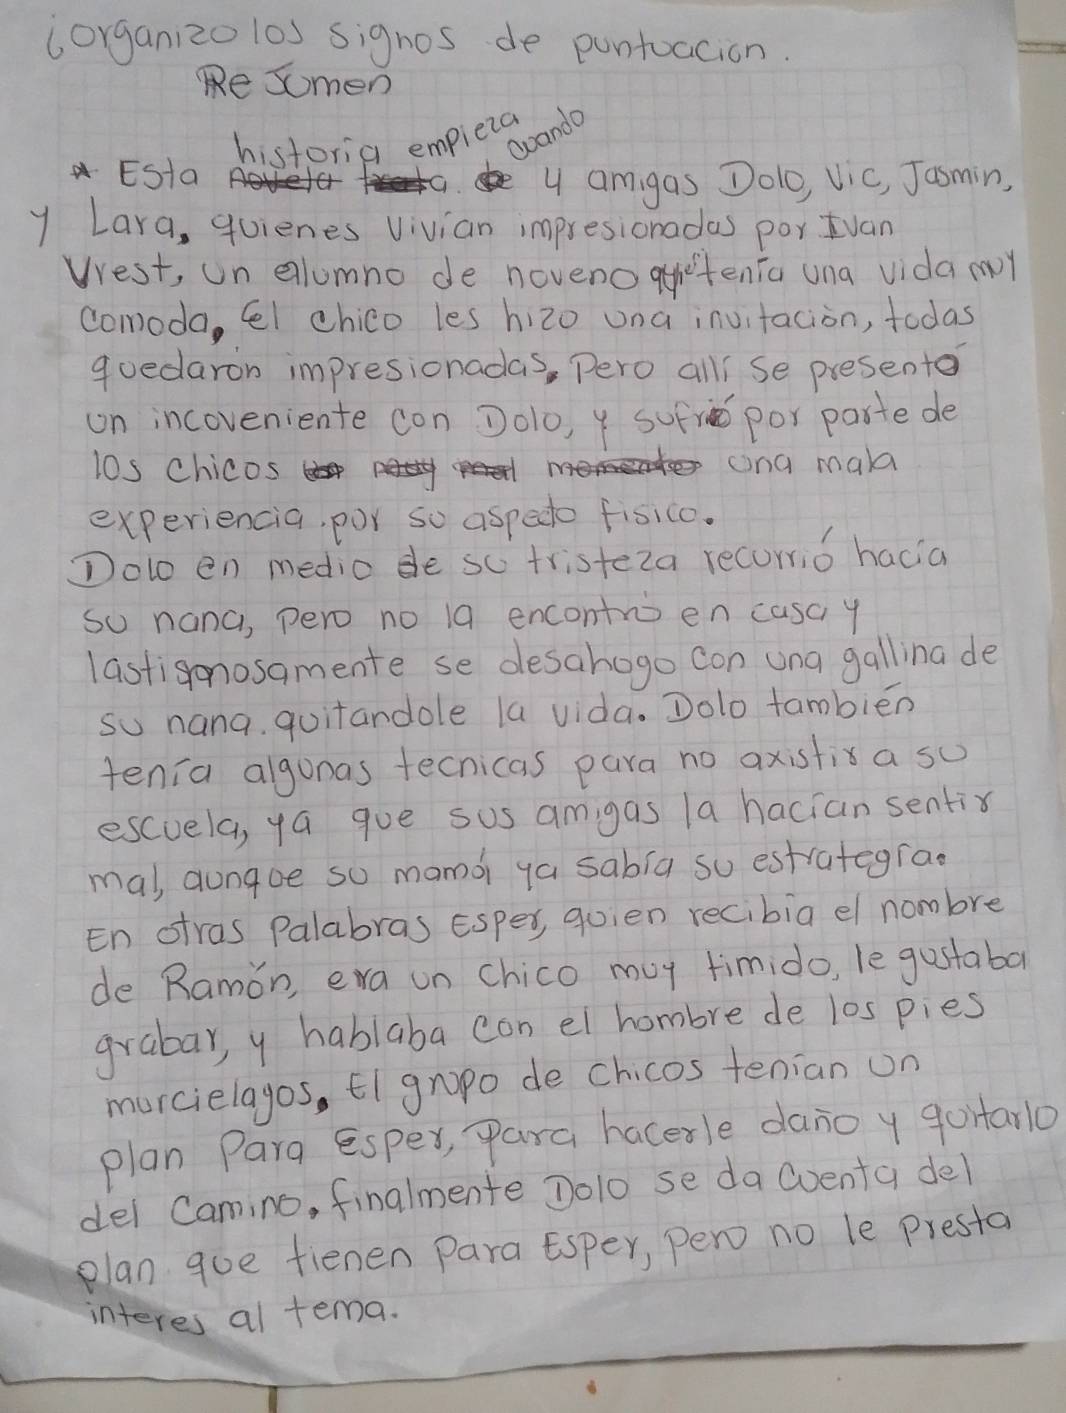 ¿organizo los signos de puntuación.
Resumen
historia empieza cuando
* Esta 4 amigas Dolo, Vic, Jasmin,
y Lara, quienes vivían impresionadas por Ivan
Vrest, un alumno de noveno tenía una vida muy
comoda, el chico les hizo una invitación, todas
quedarón impresionadas, Pero allí se presentó
un incoveniente con Dolo, y sufrió por parte de
los chicos una mala
experiencia por su aspecto fisico.
Dolo en medio de su tristeza recurrió hacía
su nana, pero no la encontró en casa y
lastimosamente se desahogo con una gallina de
su nana. quitandole la vida. Dolo también
tenía algunas tecnicas para no axistir a su
escuela, ya que sus amigas la hacían sentir
mal, aunque su mamá ya sabía su estrategía.
En otras Palabras Esper, quien recibia el nombre
de Ramón, era un chico muy timido, le gustaba
grabar, y hablaba con el hombre de los pies
murcielagos. El grupo de chicos tenian un
plan Para Esper, para hacerle daño y quitarlo
del Camino. finalmente Dolo se da cuenta del
plan que tienen Para Esper, pero no le presta
interes al tema.